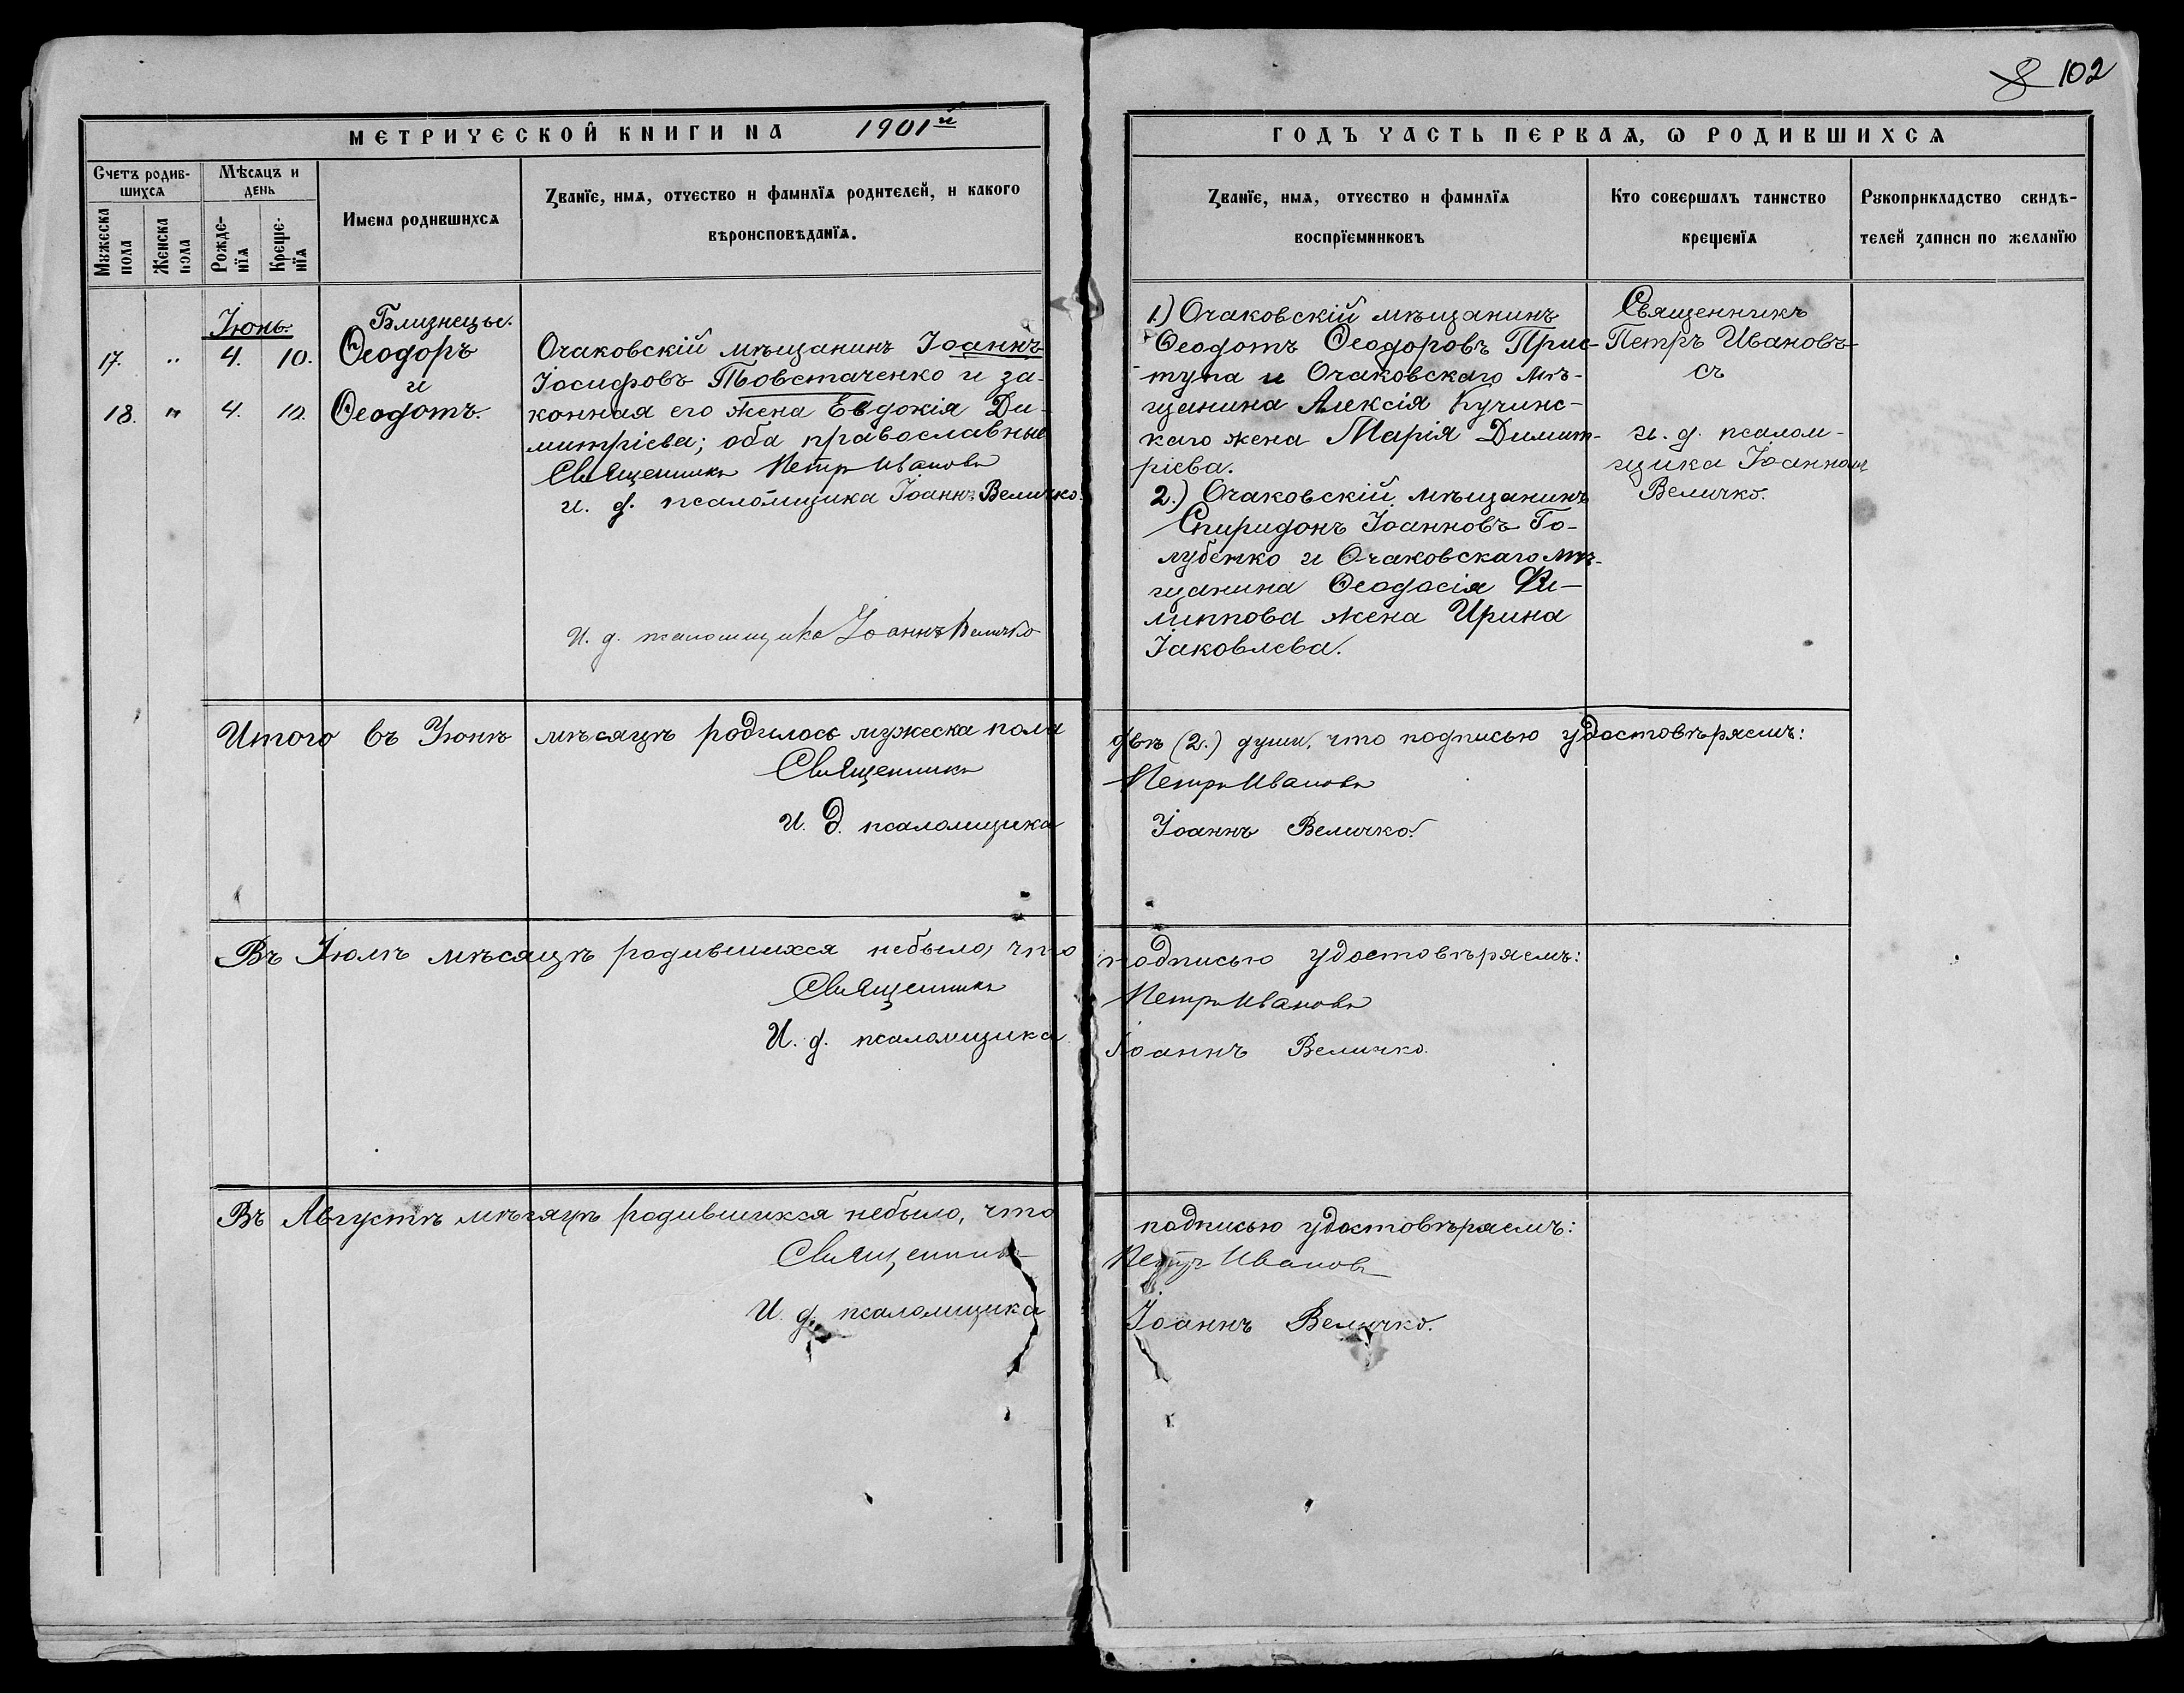 8 102
МЕТРИЧЕСКОЙ КНИГИ НА 1901й
ГОДЪ ЧАСТЬ ПЕРВАѦ, Ѡ РОДИВШИХСѦ
Счетъ родив-
шихсѧ
Мужеска
пола
Женска
пола
Мѣсѧцъ и
день
Рожде-
нїѧ
Креще-
нїѧ
Имена родившихсѧ
Званїе, имѧ, отчество и фамилїѧ родителей, и какого
вѣроисповѣданїѧ.
Званїе, имѧ, отчество и фамилїѧ
воспрїемниковъ
Кто совершалъ таинство
крещенїѧ
Рукоприкладство свидѣ-
телей записи по желанїю
Іюнь.
17. " 4. 10.
18. " 4. 10.
Близнецы.
Ѳеодоръ
и
Ѳеодотъ.
Очаковскій мѣщанинъ Іоаннъ
Іосифовъ Товстаченко и за-
конная его жена Евдокія Ди-
митріева; оба православные
Священникъ Петръ Ивановъ
и. д. псаломщика Іоаннъ Величко.
И. д. псаломщика Іоаннъ Величко
1.) Очаковскій мѣщанинъ
Ѳеодотъ Ѳеодоровъ Прис-
тупа и Очаковскаго мѣ-
щанина Алексія Кучинс-
каго жена Марія Димит-
ріева.
2.) Очаковскій мѣщанинъ
Спиридонъ Іоанновъ Го-
лубенко и Очаковскаго мѣ-
щанина Ѳеодосія Фи-
липпова жена Ирина
Іаковлева.
Священникъ
Петръ Ивановъ
съ
и. д. псалом-
щика Іоанномъ
Величко.
Итого въ Іюнѣ мѣсяцѣ родилось мужеска пола двѣ (2.) души, что подписью удостовѣряемъ:
Священникъ Петръ Ивановъ
И. д. псаломщика Іоаннъ Величко.
Въ Іюлѣ мѣсяцѣ родившихся небыло, что подписью удостовѣряемъ:
Священникъ Петръ Ивановъ
И. д. псаломщика Іоаннъ Величко.
Въ Августѣ мѣсяцѣ родившихся небыло, что подписью удостовѣряемъ:
Священникъ Петръ Ивановъ
И. д. псаломщика Іоаннъ Величко.